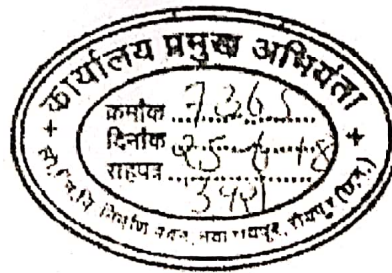 कार्यालय प्रमुख अभियंता
क्रमांक 7365
दिनांक 25-6-18
सहपत्र
निर्माण भवन, नवा रायपुर, रायपुर (छ.ग.)